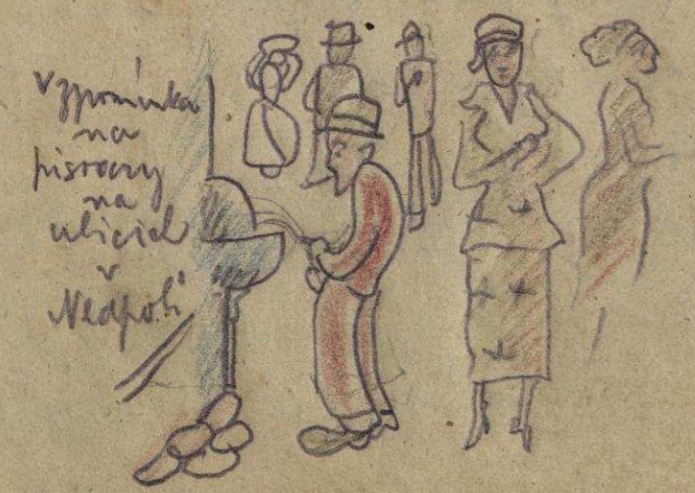 Vzpomínka
na
pisoáry
na
ulicích
v
Neápoli